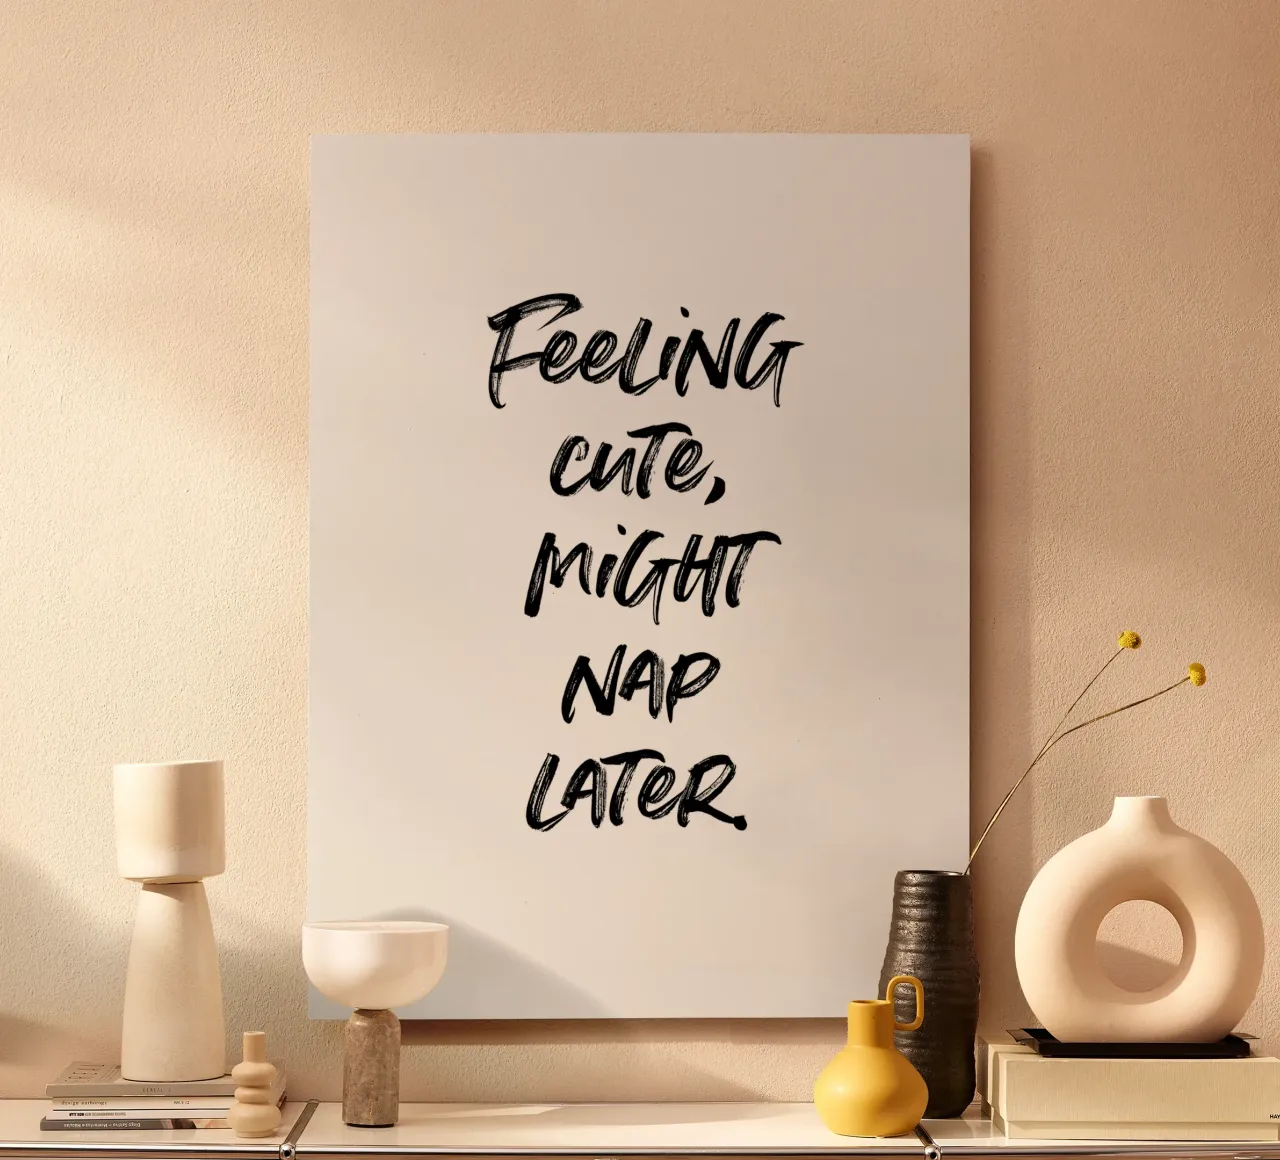 FeeLiNG
cuTe,
MiGHT
NAP
LATeR.
HAY